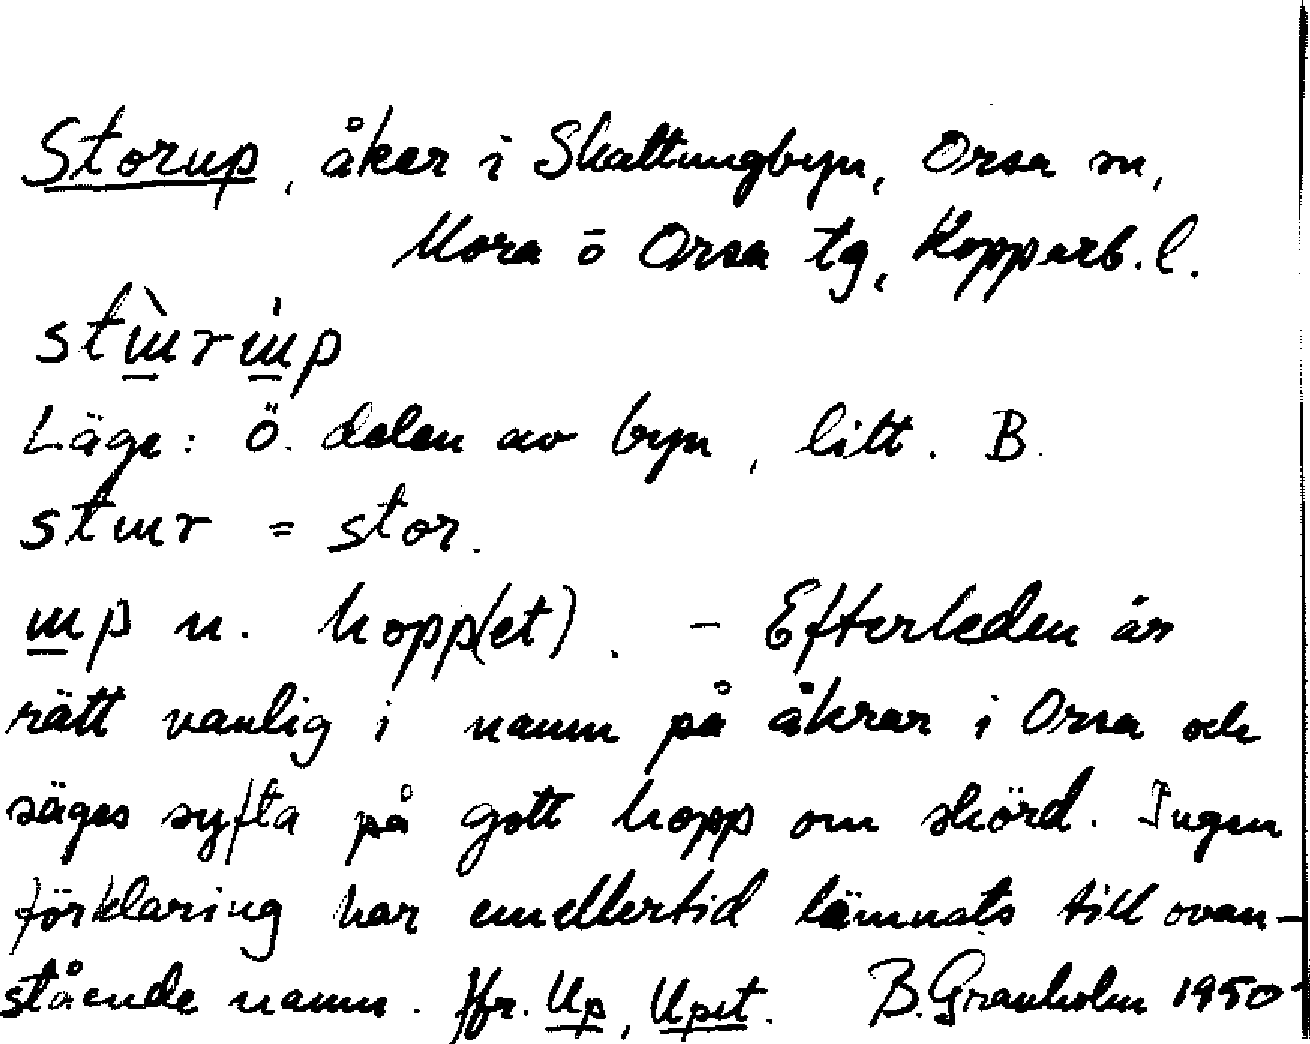 Storup, åker i Skattungbyn, Orsa sn,
Mora o Orsa tg, Kopparb. l.
stɯ̲̀rɯ̲́p
Läge: Ö. delen av byn, litt. B.
stɯr = stor.
ɯ̲p n. hopp(et). - Efterleden är
rätt vanlig i namn på åkrar i Orsa och
säges syfta på gott hopp om skörd. Ingen
förklaring har emellertid lämnats till ovan-
stående namn. Jfr. Up, Upet. B. Granholm 1950